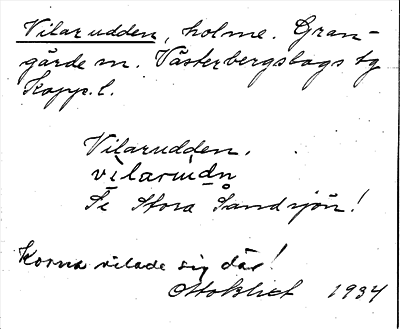 Vilarudden, holme. Gran-
gärde sn. Västerbergslags tg
Kopp. l.
Vilarudden.
vìlarùdn
Se Stora Sandsjön!
Korna vilade sig där!
1934